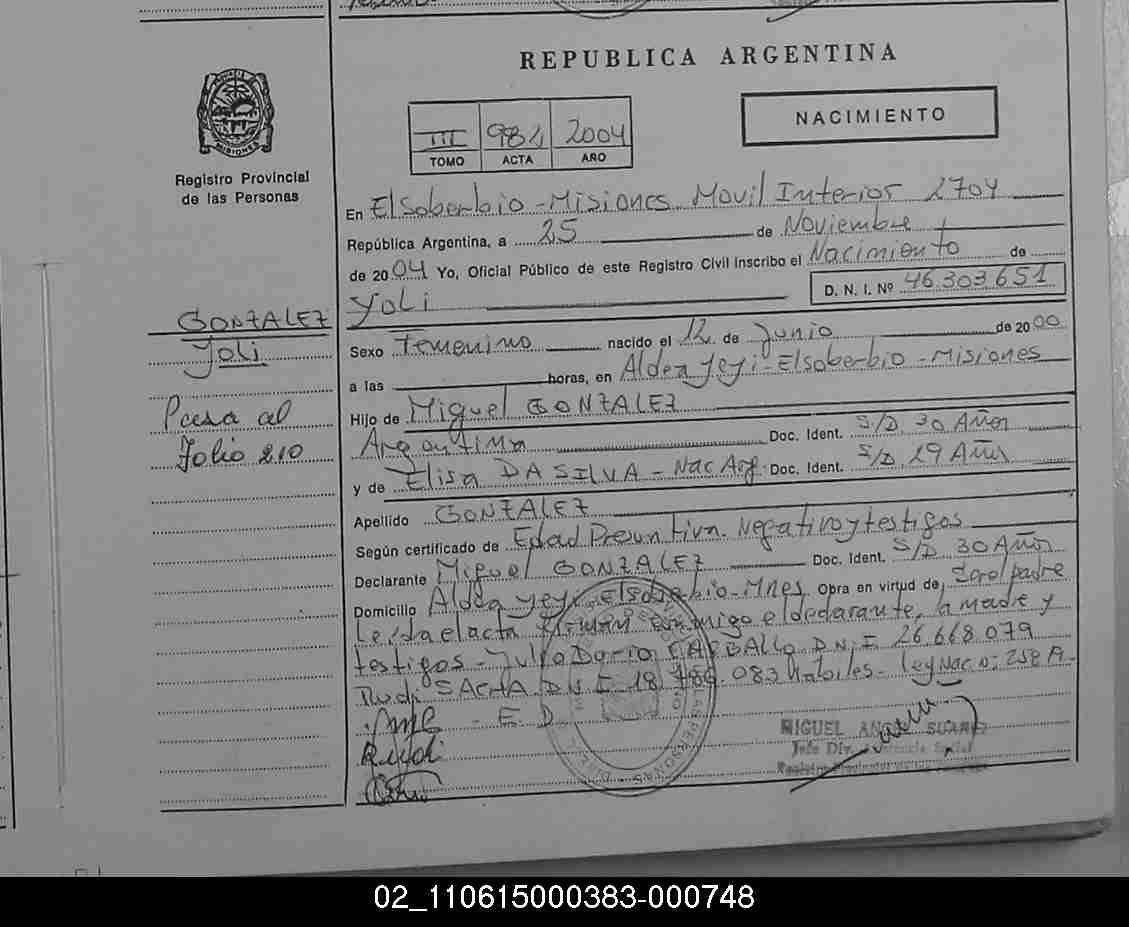 REPUBLICA ARGENTINA
NACIMIENTO
III 984 2004
TOMO ACTA AÑO
MISIONES
Registro Provincial
de las Personas
En El soberbio - Misiones Movil Interior 2704
República Argentina, a 25 de Noviembre
de 2004 Yo, Oficial Público de este Registro Civil inscribo el Nacimiento de
Yoli D. N. I. Nº 46.303.651
GONZALEZ
Yoli
Pasa al
Folio 210
Sexo Femenino nacido el 12 de Junio de 2000
a las horas, en Aldea Yeyi - El soberbio - Misiones
Hijo de Miguel GONZALEZ
Argentina Doc. Ident. S/D 30 Años
y de Elisa DA SILVA - Nac Arg. Doc. Ident. S/D 29 Años
Apellido GONZALEZ
Según certificado de Edad Presuntiva. Negativo y testigos
Declarante Miguel GONZALEZ Doc. Ident. S/D 30 Años
Domicilio Aldea Yeyi. El soberbio - Mnes Obra en virtud de Ser el padre
Leida el acta firman conmigo el declarante, la madre y
testigos - Julio Dario CARBALLO D.N.I. 26.668.079
Rudi SACHA D.N.I. 18.789.083 habiles - Ley Nac. nº 258 A.
E. D.
Rudi
MIGUEL ANGEL SUAREZ
Jefe Div. Asistencia Social
Registro Provincial de las Personas
02_110615000383-000748